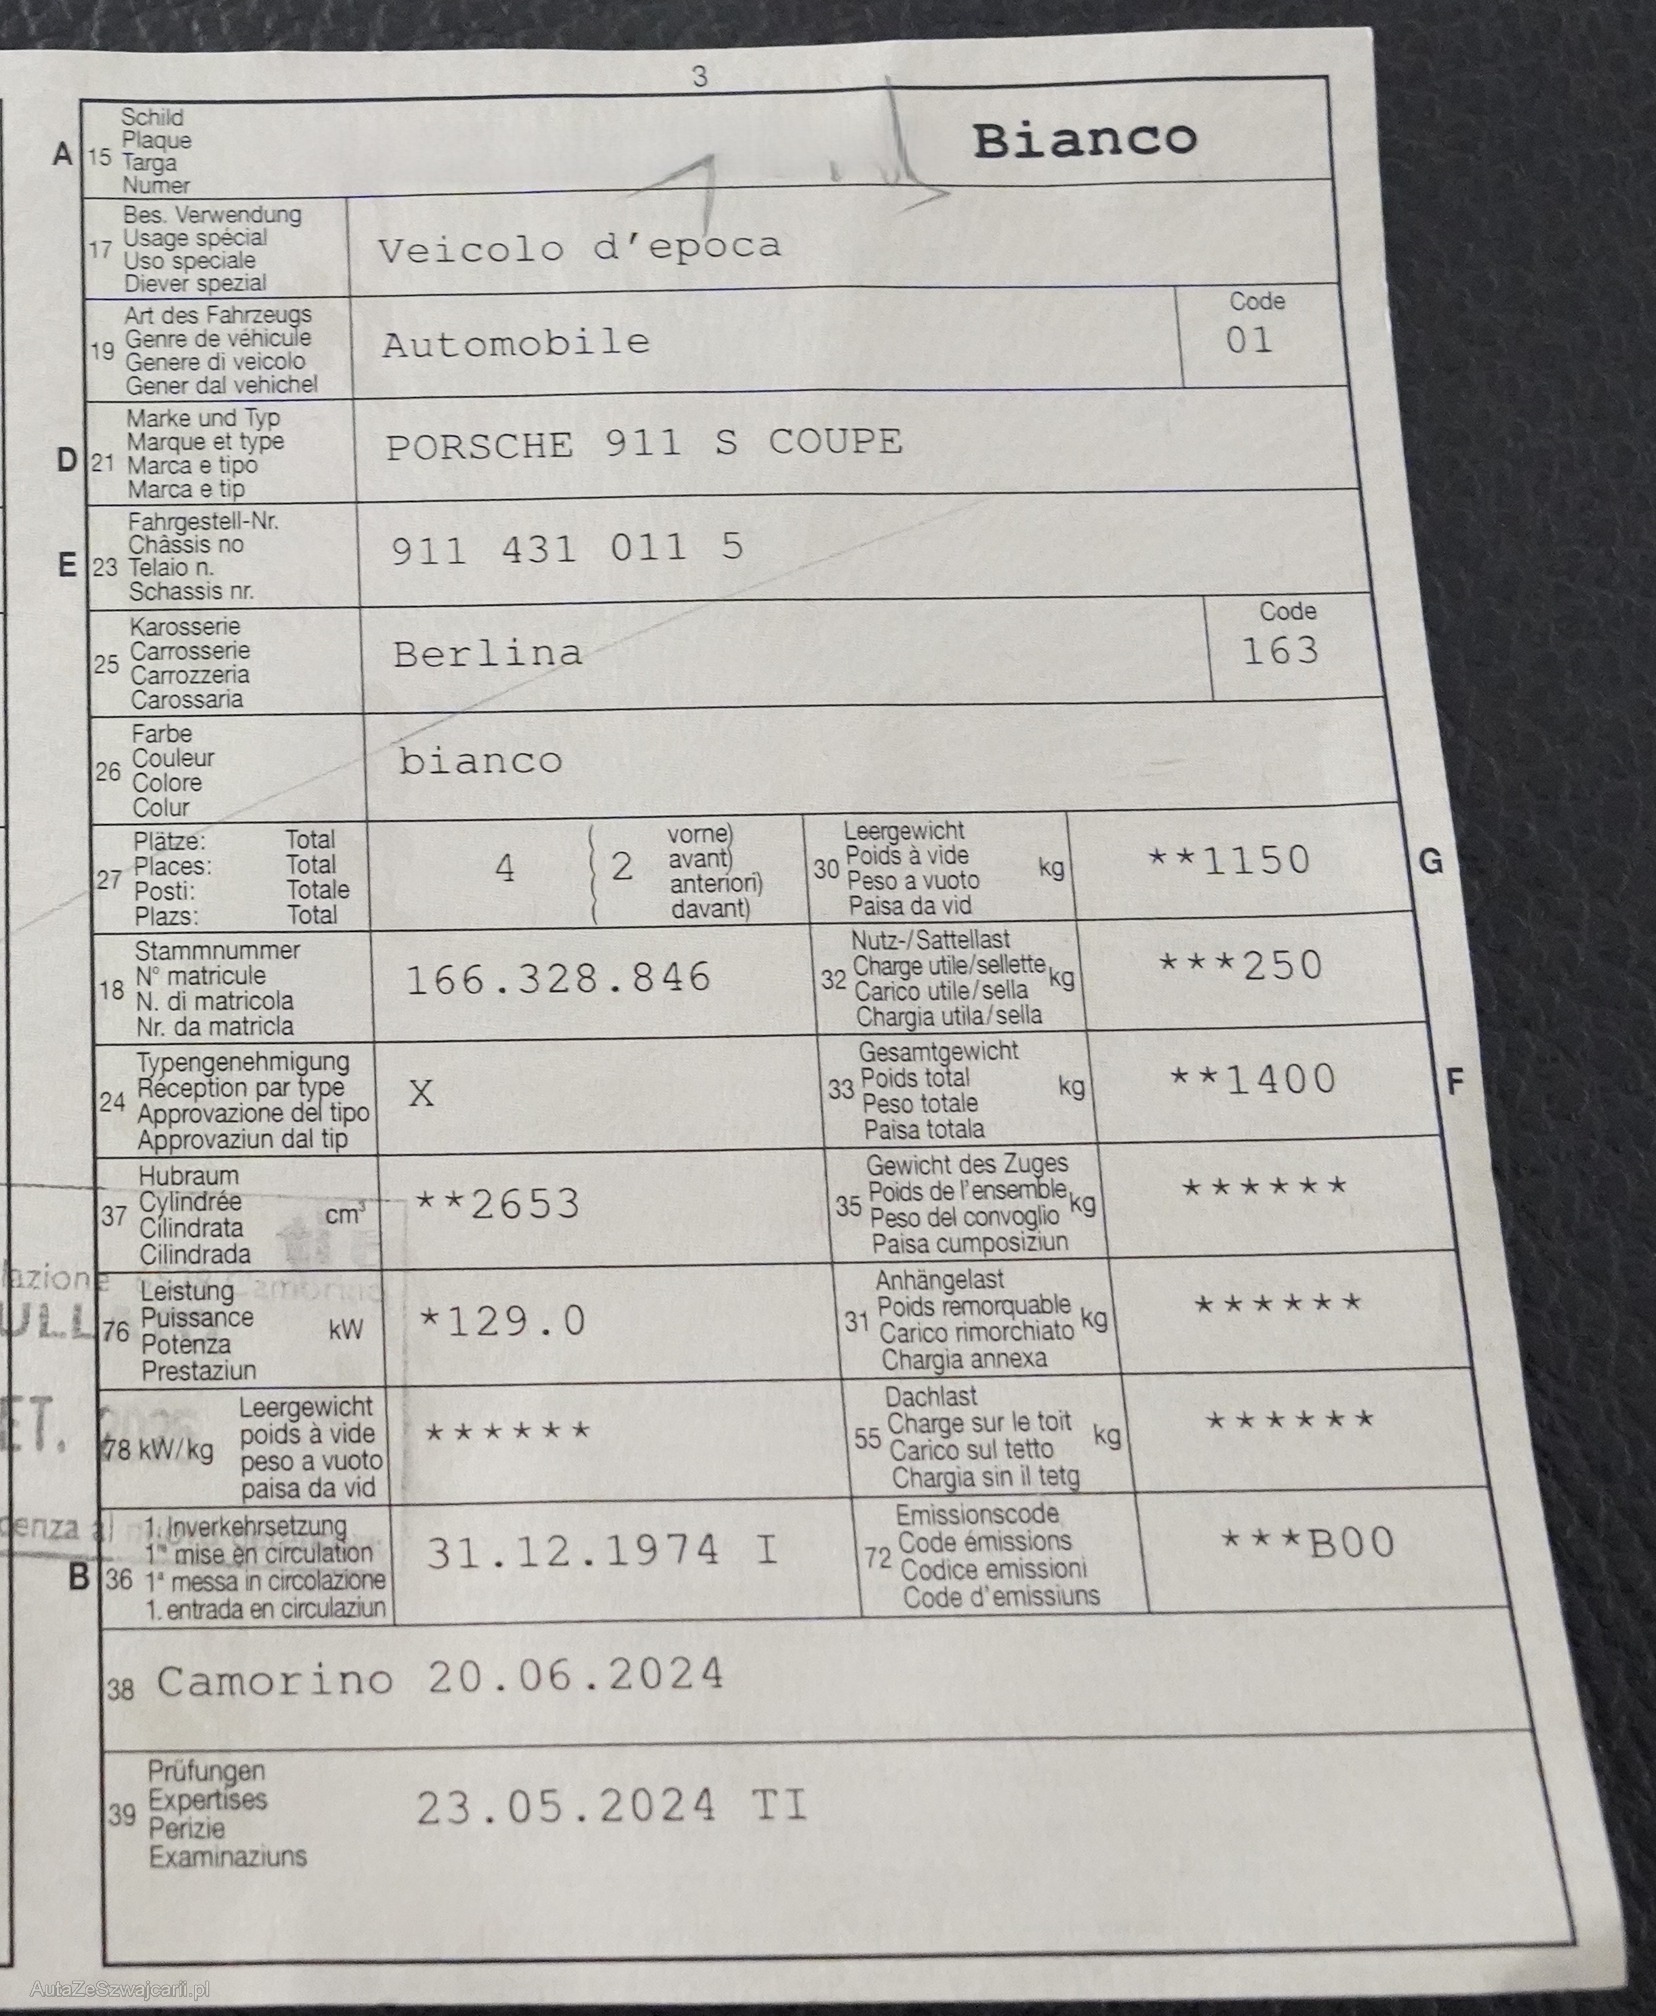 3
A 15 Schild
Plaque
Targa
Numer
Bianco
17 Bes. Verwendung
Usage spécial
Uso speciale
Diever spezial
Veicolo d'epoca
19 Art des Fahrzeugs
Genre de véhicule
Genere di veicolo
Gener dal vehichel
Automobile
Code
01
D 21 Marke und Typ
Marque et type
Marca e tipo
Marca e tip
PORSCHE 911 S COUPE
E 23 Fahrgestell-Nr.
Châssis no
Telaio n.
Schassis nr.
911 431 011 5
25 Karosserie
Carrosserie
Carrozzeria
Carossaria
Berlina
Code
163
26 Farbe
Couleur
Colore
Colur
bianco
27 Plätze: Total
Places: Total
Posti: Totale
Plazs: Total
4 ( 2 vorne)
avant)
anteriori)
davant)
30 Leergewicht
Poids à vide
Peso a vuoto
Paisa da vid
kg
**1150
G
18 Stammnummer
N° matricule
N. di matricola
Nr. da matricla
166.328.846
32 Nutz-/Sattellast
Charge utile/sellette
Carico utile/sella
Chargia utila/sella
kg
***250
24 Typengenehmigung
Réception par type
Approvazione del tipo
Approvaziun dal tip
X
33 Gesamtgewicht
Poids total
Peso totale
Paisa totala
kg
**1400
F
37 Hubraum
Cylindrée
Cilindrata
Cilindrada
cm³
**2653
35 Gewicht des Zuges
Poids de l'ensemble
Peso del convoglio
Paisa cumposiziun
kg
******
76 Leistung
Puissance
Potenza
Prestaziun
kW
*129.0
31 Anhängelast
Poids remorquable
Carico rimorchiato
Chargia annexa
kg
******
78 kW/kg Leergewicht
poids à vide
peso a vuoto
paisa da vid
******
55 Dachlast
Charge sur le toit
Carico sul tetto
Chargia sin il tetg
kg
******
B 36 1. Inverkehrsetzung
1re mise en circulation
1a messa in circolazione
1. entrada en circulaziun
31.12.1974 I
72 Emissionscode
Code émissions
Codice emissioni
Code d'emissiuns
***B00
38 Camorino 20.06.2024
39 Prüfungen
Expertises
Perizie
Examinaziuns
23.05.2024 TI
AutaZeSzwajcarii.pl